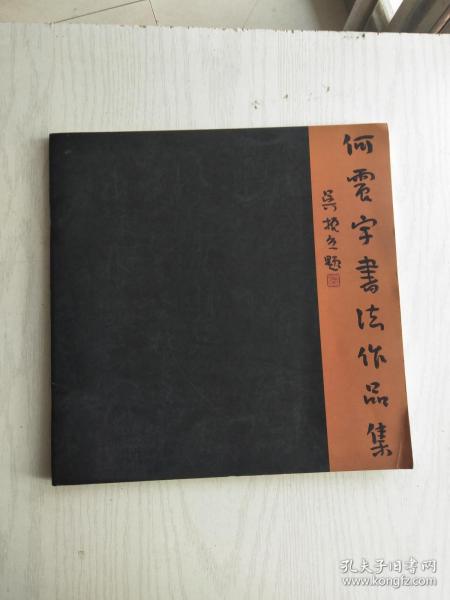 何震宇書法作品集
吳振立題
孔夫子旧书网
www.kongfz.com